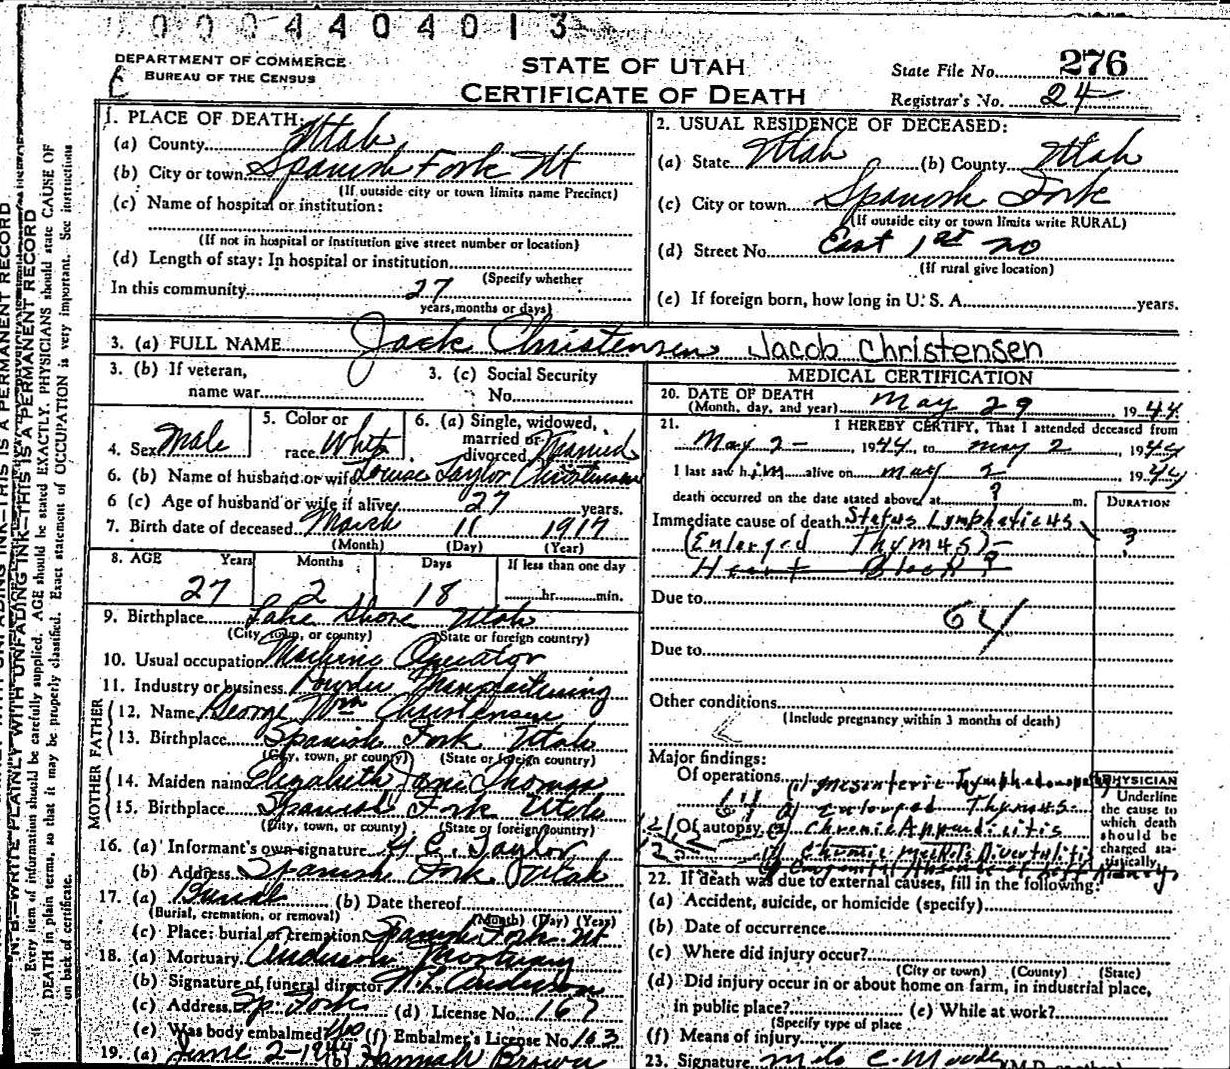 0 0 0 4 4 0 4 0 1 3
DEPARTMENT OF COMMERCE
BUREAU OF THE CENSUS
STATE OF UTAH
CERTIFICATE OF DEATH
State File No. 276
Registrar's No. 24
1. PLACE OF DEATH:
(a) County Utah
(b) City or town Spanish Fork Ut
(If outside city or town limits name Precinct)
(c) Name of hospital or institution:
(If not in hospital or institution give street number or location)
(d) Length of stay: In hospital or institution
(Specify whether
In this community 27
years, months or days)
2. USUAL RESIDENCE OF DECEASED:
(a) State Utah (b) County Utah
(c) City or town Spanish Fork
(If outside city or town limits write RURAL)
(d) Street No. East 1st no
(If rural give location)
(e) If foreign born, how long in U. S. A. years.
3. (a) FULL NAME Jack Christensen Jacob Christensen
3. (b) If veteran,
name war
3. (c) Social Security
No.
4. Sex Male
5. Color or
race White
6. (a) Single, widowed,
married or
divorced Married
6. (b) Name of husband or wife Louise Taylor Christensen
6 (c) Age of husband or wife if alive 27 years.
7. Birth date of deceased March 11 1917
(Month) (Day) (Year)
8. AGE Years Months Days If less than one day
27 2 18 hr. min.
9. Birthplace Lake Shore Utah
(City, town, or county) (State or foreign country)
10. Usual occupation Machine Operator
11. Industry or business Powder Manufacturing
FATHER
12. Name George Wm Christensen
13. Birthplace Spanish Fork Utah
(City, town, or county) (State or foreign country)
MOTHER
14. Maiden name Elizabeth Jane Thomas
15. Birthplace Spanish Fork Utah
(City, town, or county) (State or foreign country)
16. (a) Informant's own signature C. Taylor
(b) Address Spanish Fork Utah
17. (a) Burial (b) Date thereof
(Burial, cremation, or removal) (Month) (Day) (Year)
(c) Place: burial or cremation Spanish Fork Ut
18. (a) Mortuary Anderson Mortuary
(b) Signature of funeral director Anderson
(c) Address Sp. Fork (d) License No. 167
(e) Was body embalmed (f) Embalmer's License No. 163
19. (a) June 2-1944 (b) Hannah Brown
MEDICAL CERTIFICATION
20. DATE OF DEATH
(Month, day, and year) May 29 1944
21. I HEREBY CERTIFY, That I attended deceased from
May 2 - , 1944, to May 2 , 1944
I last saw him alive on May 2 , 1944
death occurred on the date stated above, at ? m.
DURATION
Immediate cause of death Status Lymphaticus
(Enlarged Thymus) -
?
Heart Block ?
Due to
64
Due to
Other conditions
(Include pregnancy within 3 months of death)
Major findings:
Of operations (1) Mesenteric Lymphadenopathy
64 2) Enlarged Thymus
Of autopsy 3) Chronic Appendicitis
4) Chronic Meckel's Diverticulitis
5) Congenital Absence of Left Kidney
PHYSICIAN
Underline
the cause to
which death
should be
charged sta-
tistically.
22. If death was due to external causes, fill in the following:
(a) Accident, suicide, or homicide (specify)
(b) Date of occurrence
(c) Where did injury occur?
(City or town) (County) (State)
(d) Did injury occur in or about home on farm, in industrial place,
in public place? (e) While at work?
(Specify type of place
(f) Means of injury
23. Signature Milo C. Moody (M.D. or other)
N. B.—WRITE PLAINLY WITH UNFADING INK—THIS IS A PERMANENT RECORD
Every item of information should be carefully supplied. AGE should be stated EXACTLY. PHYSICIANS should state CAUSE OF
DEATH in plain terms, so that it may be properly classified. Exact statement of OCCUPATION is very important. See instructions
on back of certificate.